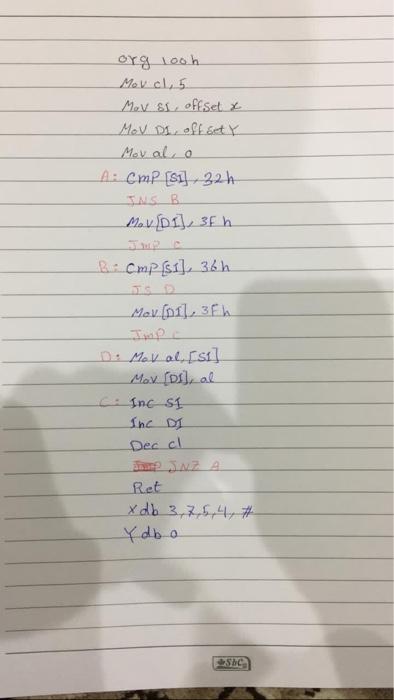 org 100h
Mov cl, 5
Mov SI, offset x
Mov DI, offset Y
Mov al, 0
A: CMP [SI], 32h
JNS B
Mov [DI], 3Fh
Jmp C
B: CMP [SI], 36h
JS D
Mov [DI], 3Fh
Jmp C
D: Mov al, [SI]
Mov [DI], al
C: Inc SI
Inc DI
Dec cl
JNZ A
Ret
X db 3,7,5,4,#
Y db 0
SbC